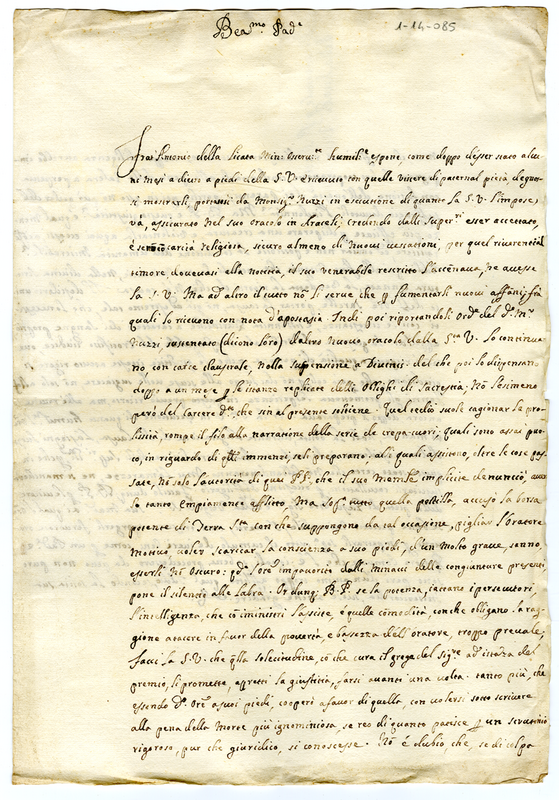 Bea.mo Pad.e
1-14-085
Frat' Antonio della Licata Min: Osserv.te humil.te espone, come doppo d'esser stato alcu
ni mesi a dietro a piedi della S. V. e ricevuto con quelle viscere di paternal pietà, degnas
si mostrarli, portossi da Monsig.r Nuzzi in essecutione di quanto la S. V. l'impose,
và, assicurato nel suo oracolo in Araceli; credendo dalli Super.ri esser accettato,
è se non carcia religiosa, sicuro almeno di nuovi vessationi, per quel riverential
timore dovevasi alla notitia, il suo venerabile rescritto l'accennava, ne avesse
la S. V: Ma ad altro il tutto nõ li serve che p fumentarli nuovi affanni
quali lo ricevono con nota d'apostasia. Indi poi riportandoli Ord.e del d.o M.r
Nuzzi sustentato (dicono loro) d'altro nuovo oracolo dalla S.tà V. lo continua
no, con carce claustrale, nella suspensione a Divinis: del che poi lo dispensano
doppo a un mese p le istanze replicate delli Offighi di Sacrestia, Nõ l'esimeno
però del carcere d.to che sin al presente sostiene. Quel tedio suole cagionar la pro
lissità, rompe il filo alla narratione della serie de crepa-cuori; quali sono assai puo
co, in riguardo di immenzi, reli preparano. alli quali assistono, oltre le cose pas
sate, nõ solo l'autorità di quei che il suo implicite denunciò,
lo tanto empiamente afflitto, Ma tutto quella accusò la borsa
potente di Terra S.ta con che suppongono da tal occasione, pigliar l'Oratore
Motivo, voler scaricar la conscienza a suo piedi, d'un molto grave, senno,
esserli nõ oscuro: impaurito dalli minacci delle congianture presenti
pone il silentio alle labra. Or dunq; B. P. se la potenza, iactano i persecutori,
l'intelligenza, che cõ i ministri l'assiste, è quelle cõmodità, con che obligano la rag
gione a tacere in favor della povertà, e bassezza dell'oratore, troppo prevale,
facci la S. V. che q.lla solecitudine, cõ che cura il grege del Sig.re ad istãza del
premio, si promette, aspretti la giustitia, farsi avanti una volta. tanto più, che
essendo d.to Ore a suoi piedi, cooperò a favor di quella, con volersi sotto scrivere
alla pena della morte più ignominiosa, se reo di quanto patisce p un scrutinio
rigoroso, pur che giuridico, si conoscesse. Nõ è dubio che, se di colpa